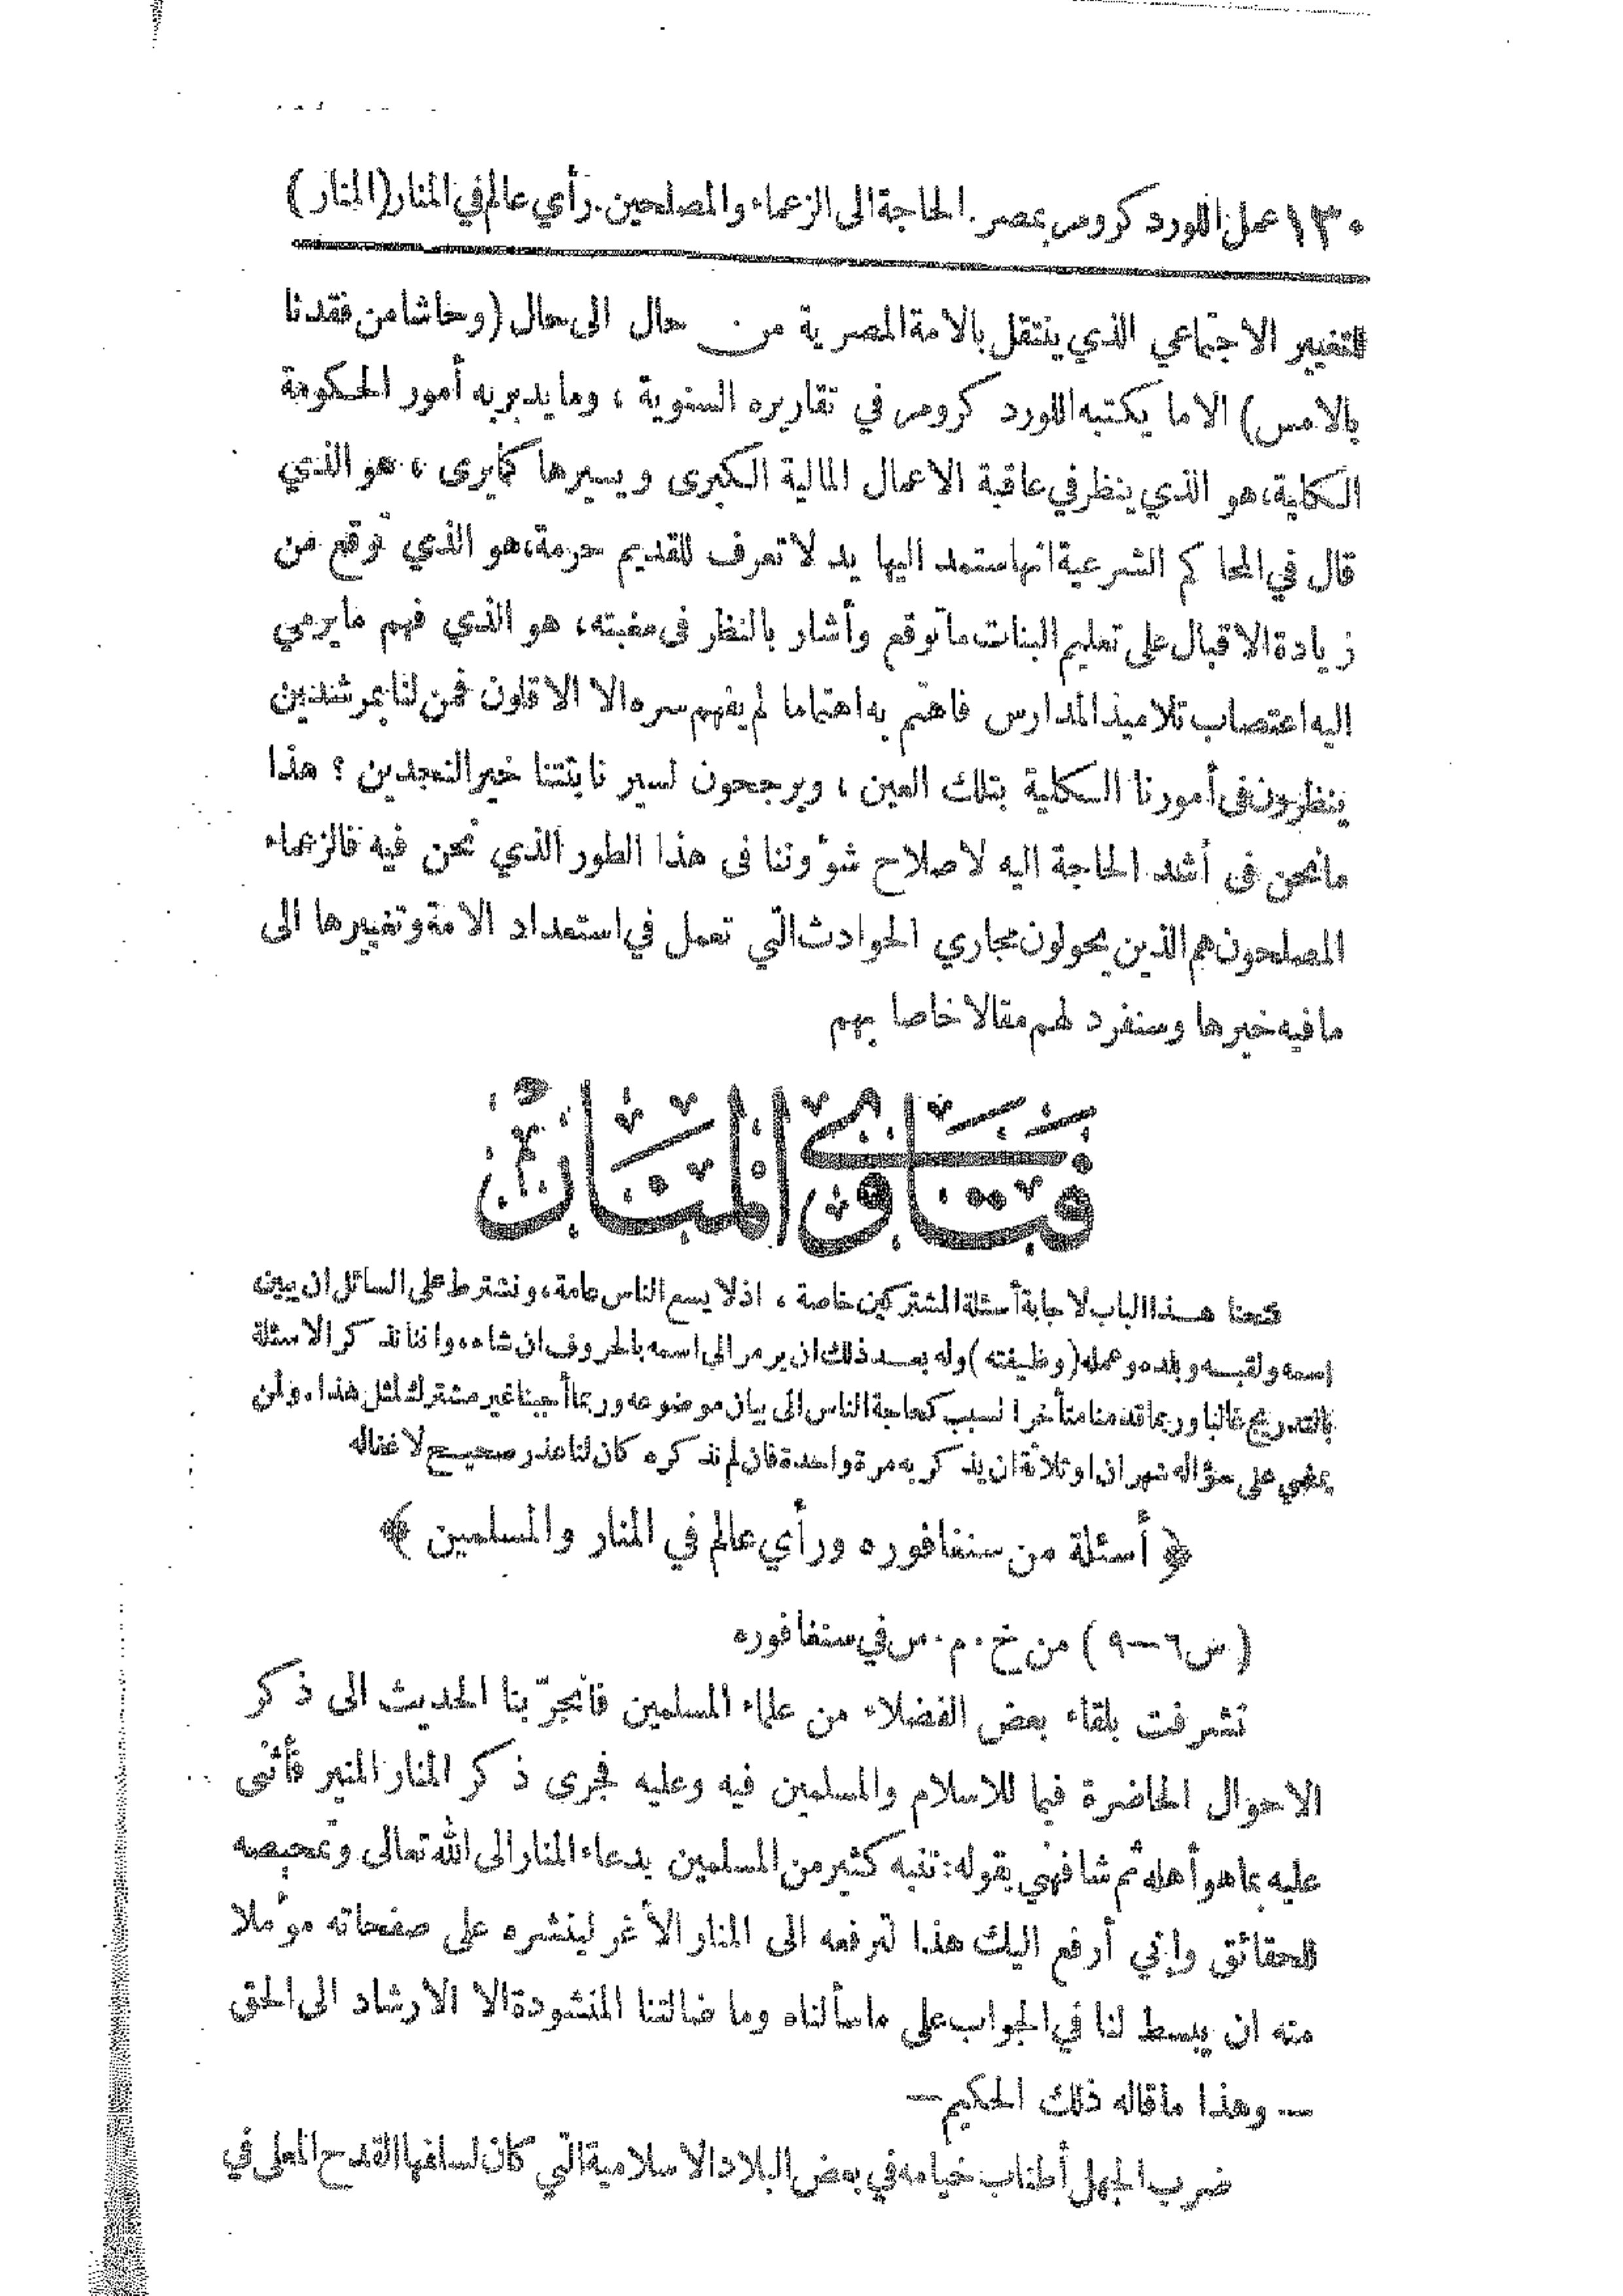 ١٣٠ عمل اللورد كرومر بمصر. الحاجة الى الزعماء والمصلحين. رأي عالم في المنار (المنار)
للتغيير الاجتماعي الذي ينتقل بالامة المصرية من حال الى حال (وحاشا من فقدنا
بالامس) الا ما يكتبه اللورد كرومر في تقاريره السنوية ، وما يدبر به أمور الحكومة
الكلية، هو الذي ينظر في عاقبة الاعمال المالية الكبرى ويسيرها كما يرى ، هو الذي
قال في المحاكم الشرعية انها ستمد اليها يد لا تعرف للقديم حرمة، هو الذي توقع من
زيادة الاقبال على تعليم البنات ما توقع وأشار بالنظر فى مغبته، هو الذي فهم ما يرمي
اليه اعتصاب تلاميذ المدارس فاهتم به اهتماما لم يفهم سره الا الاقلون فمن لنا بمرشدين
ينظرون فى أمورنا الكلية بتلك العين ، ويرجحون لسير نابتتنا خير النجدين ؟ هذا
ما نحن فى أشد الحاجة اليه لاصلاح شؤوننا فى هذا الطور الذي نحن فيه فالزعماء
المصلحون هم الذين يحولون مجاري الحوادث التي تعمل في استعداد الامة وتغييرها الى
ما فيه خيرها وسنفرد لهم مقالا خاصا بهم
فتاوى المنار
فتحنا هذا الباب لاجابة أسئلة المشتركين خاصة ، اذ لا يسع الناس عامة، ونشترط على السائل ان يبين
اسمه ولقبه وبلده وعمله (وظيفته) وله بعد ذلك ان يرمز الى اسمه بالحروف ان شاء، واننا نذكر الاسئلة
بالتدريج غالبا وربما قدمنا متأخرا لسبب كحاجة الناس الى بيان موضوعه وربما أجبنا غير مشترك لمثل هذا. ولمن
يمضي على سؤاله شهران او ثلاثة ان يذكر به مرة واحدة فان لم نذكره كان لنا عذر صحيح لاغفاله
﴿ أسئلة من سنغافوره ورأي عالم في المنار والمسلمين ﴾
(س٦—٩) من خ. م. س في سنغافوره
تشرفت بلقاء بعض الفضلاء من علماء المسلمين فانجرّ بنا الحديث الى ذكر
الاحوال الحاضرة فيما للاسلام والمسلمين فيه وعليه فجرى ذكر المنار المنير فأثنى
عليه بما هو أهله ثم شافهني بقوله: تنبه كثير من المسلمين بدعاء المنار الى الله تعالى وتمحيصه
للحقائق وإني أرفع اليك هذا لترفعه الى المنار الأغر لينشره على صفحاته مؤملا
منه ان يبسط لنا في الجواب على ما سألناه وما ضالتنا المنشودة الا الارشاد الى الحق
— وهذا ما قاله ذلك الحكيم —
ضرب الجهل أطناب خيامه في بعض البلاد الاسلامية التي كان لسلفها القدح المعلى في